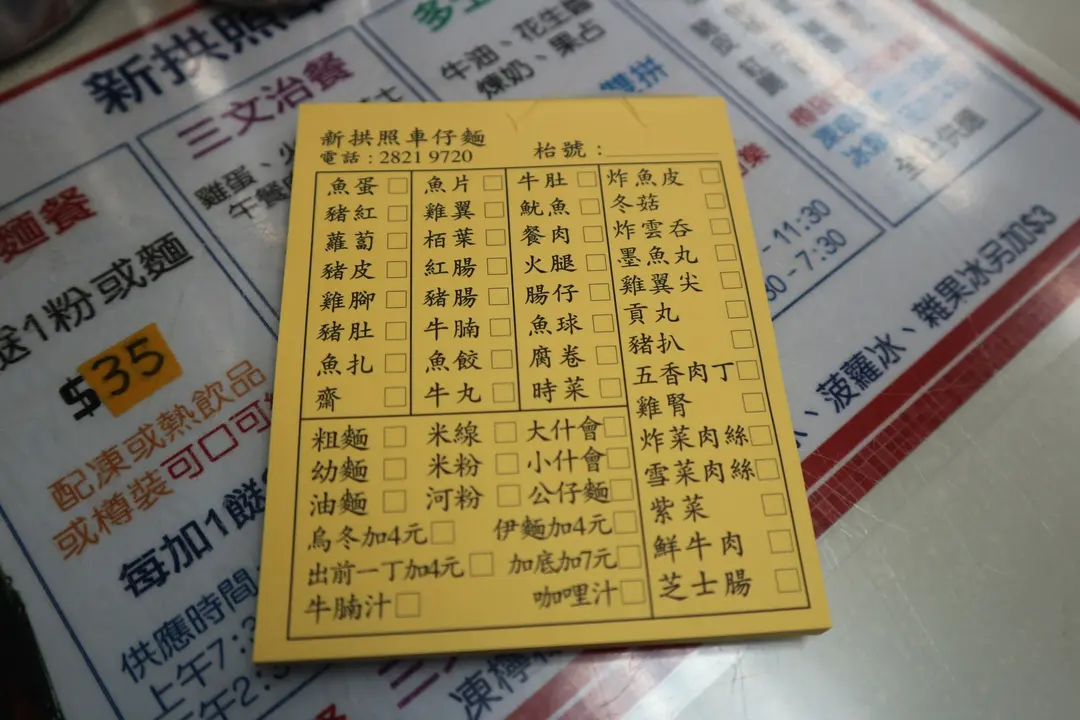 新拱照車仔麵
電話：2821 9720
枱號：
魚蛋 □ 魚片 □ 牛肚 □ 炸魚皮 □
豬紅 □ 雞翼 □ 魷魚 □ 冬菇 □
蘿蔔 □ 栢葉 □ 餐肉 □ 炸雲吞 □
豬皮 □ 紅腸 □ 火腿 □ 墨魚丸 □
雞腳 □ 豬腸 □ 腸仔 □ 雞翼尖 □
豬肚 □ 牛腩 □ 魚球 □ 貢丸 □
魚扎 □ 魚餃 □ 腐卷 □ 豬扒 □
齋 □ 牛丸 □ 時菜 □ 五香肉丁 □
雞腎 □
粗麵 □ 米線 □ 大什會 □ 炸菜肉絲 □
幼麵 □ 米粉 □ 小什會 □ 雪菜肉絲 □
油麵 □ 河粉 □ 公仔麵 □ 紫菜 □
烏冬加4元 □ 伊麵加4元 □ 鮮牛肉 □
出前一丁加4元 □ 加底加7元 □ 芝士腸 □
牛腩汁 □ 咖喱汁 □
新拱照車
三文治餐
雞蛋、火
午餐肉
多士
牛油、花生醬
煉奶、果占
雙拼
麵餐
送1粉或麵
$35
配凍或熱飲品
或樽裝可口可
每加1餸
供應時間:
上午7:3
下午2:3
- 11:30
30 - 7:30
全日供應
、菠蘿冰、雜果冰另加$3
凍檸檬